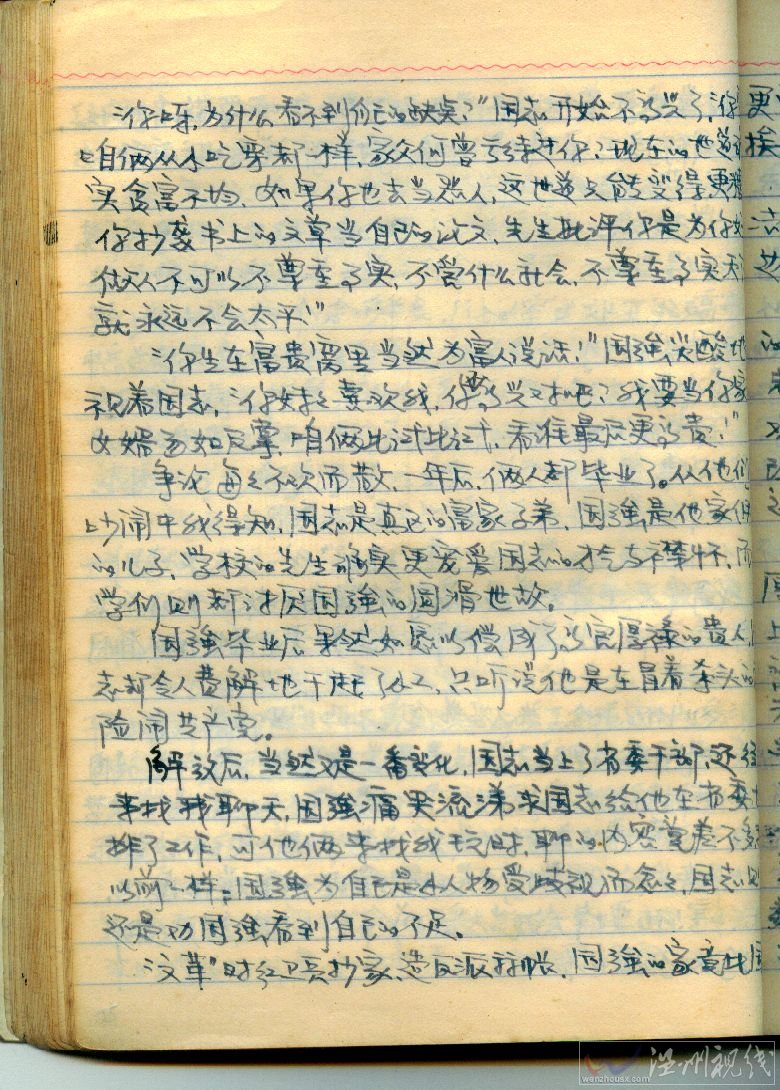 "你呀,为什么看不到自己的缺点?"国志开始不高兴了,"
咱俩从小吃穿都一样,家父何曾亏待过你?现在的世道
实贫富不均,如果你也去当恶人,这世道只能变得更糟
你抄袭书上的文章当自己的论文,先生批评你是为你好
做人不可以不尊重事实,不管什么社会,不尊重事实天
就永远不会太平!"
"你生在富贵窝里当然为富人说话!"国强尖酸地
视着国志,"你妹妹喜欢我,你不高兴对吧?我要当你家
女婿易如反掌,咱俩比试比试,看谁最后更高贵!"
争论每每不欢而散,一年后,俩人都毕业了。从他们
吵闹中我得知,国志是真正的富家子弟,国强是他家佣
的儿子,学校的先生确实更宠爱国志的才气和襟怀,而
学们则都讨厌国强的圆滑世故。
国强毕业后果然如愿以偿成了高官厚禄的贵人,
志却令人费解地干起了化工,只听说他是在冒着杀头的
险闹共产党。
解放后,当然又是一番变化,国志当上了省委干部,还经
来找我聊天,国强痛哭流涕求国志给他在省委
排了工作,可他俩来找我玩时,聊的内容竟差不多
以前一样:国强为自己是小人物受歧视而忿忿,国志则
还是劝国强看到自己的不足。
"文革"时红卫兵抄家,造反派算帐,国强的家竟比国
温州视线
wenzhousx.com